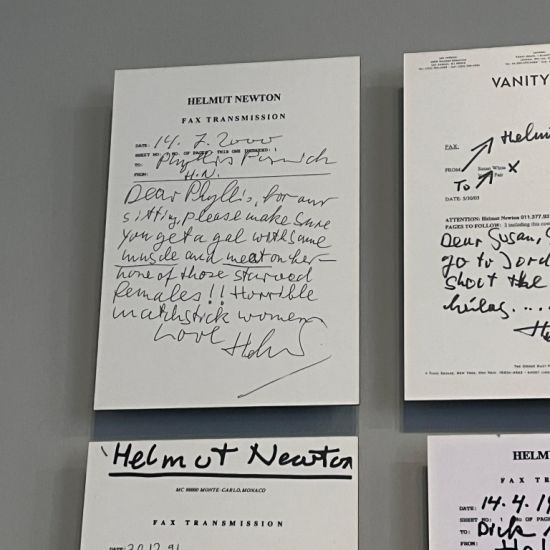 HELMUT NEWTON
FAX TRANSMISSION
DATE: 14. 7. 2000
SHEET NO: 1 NO. OF PAGES THIS ONE INCLUDED: 1
TO: Phyllis
FROM: H.N.
Dear Phyllis, for our
sitting, please make sure
you get a gal with some
muscle and meat on her—
none of those starved
females!! Horrible
matchstick women
Love Helmut
VANITY
FAX
Helmu
FROM
Susan White
Fair X
To
DATE: 5/30/03
ATTENTION: Helmut Newton 011.377.93
PAGES TO FOLLOW: 3 including this cov
Dear Susan,
go to Jord
shoot the
Helmut Newton
MC 98000 MONTE-CARLO, MONACO
FAX TRANSMISSION
DATE: 20.12.91
HELM
FAX TR
DATE: 14.4.19
SHEET NO: 1 NO OF PAGE
TO: Dick
FROM: Hel